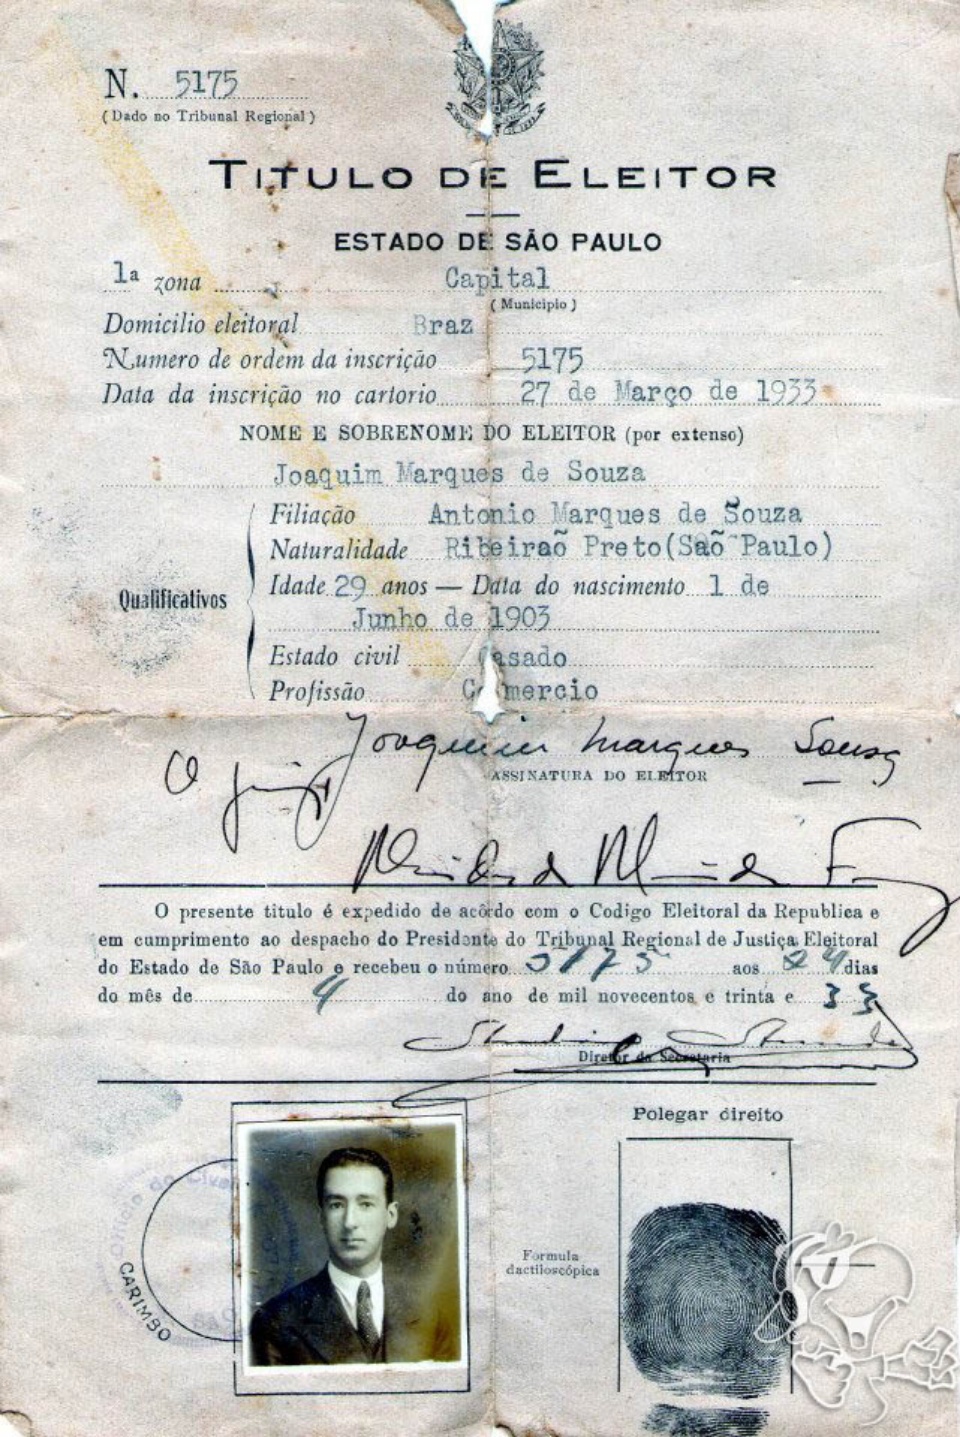 N. 5175
(Dado no Tribunal Regional)
TITULO DE ELEITOR
ESTADO DE SÃO PAULO
1ª zona Capital
(Municipio)
Domicilio eleitoral Braz
Numero de ordem da inscrição 5175
Data da inscrição no cartorio 27 de Março de 1933
NOME E SOBRENOME DO ELEITOR (por extenso)
Joaquim Marques de Souza
Filiação Antonio Marques de Souza
Naturalidade Ribeiraõ Preto(Saõ Paulo)
Qualificativos
Idade 29 anos — Data do nascimento 1 de
Junho de 1903
Estado civil Casado
Profissão Commercio
Joaquim Marques Sousa
ASSINATURA DO ELEITOR
O juiz
O presente titulo é expedido de acôrdo com o Codigo Eleitoral da Republica e
em cumprimento ao despacho do Presidente do Tribunal Regional de Justiça Eleitoral
do Estado de São Paulo e recebeu o número 5175 aos 24 dias
do mês de 4 do ano de mil novecentos e trinta e 33
Diretor da Secretaria
Polegar direito
Formula
dactiloscópica
CARIMBO